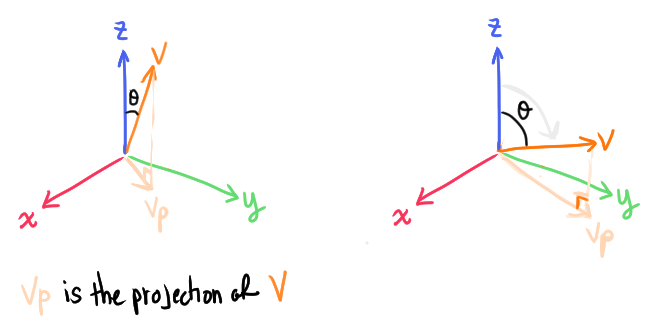 z
V
θ
x
y
Vp
z
θ
V
x
y
Vp
Vp is the projection of V